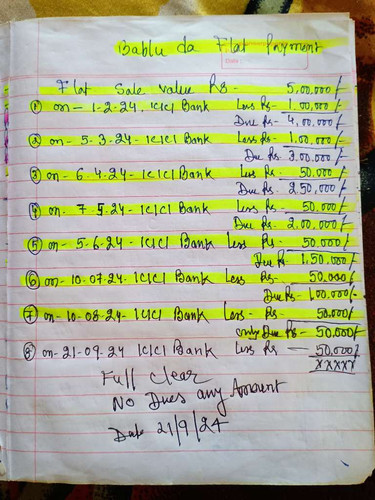 Bablu da Flat Payment
Date :
Flat Sale value Rs - 5,00,000/-
① on - 1-2-24. ICICI Bank Less Rs - 1,00,000/-
Due Rs - 4,00,000/-
② on - 5-3-24 - ICICI Bank Less Rs - 1,00,000/-
Due Rs - 3,00,000/-
③ on - 6-4-24 - ICICI Bank Less Rs - 50,000/-
Due Rs - 2,50,000/-
④ on - 7-5-24 - ICICI Bank Less Rs - 50,000/-
Due Rs - 2,00,000/-
⑤ on - 5-6-24 - ICICI Bank Less Rs - 50,000/-
Due Rs - 1,50,000/-
⑥ on - 10-07-24 - ICICI Bank Less Rs - 50,000/-
Due Rs - 1,00,000/-
⑦ on - 10-08-24 - ICICI Bank Less - Rs - 50,000/-
only Due Rs - 50,000/-
⑧ on - 21-09-24 ICICI Bank Less Rs - 50,000/-
XXXXX
Full Clear
No Dues any Amount
Date 21/9/24